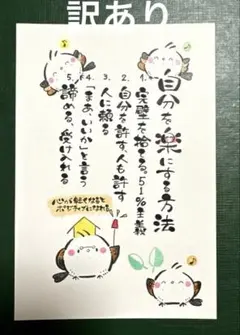 訳あり
自分を楽にする方法
1. 完璧を捨てる。51%主義
2. 自分を許す、人も許す
3. 人に頼る
4. 「まあ、いいか」と言う
5. 諦める、受け入れる
ポジティブになれる。